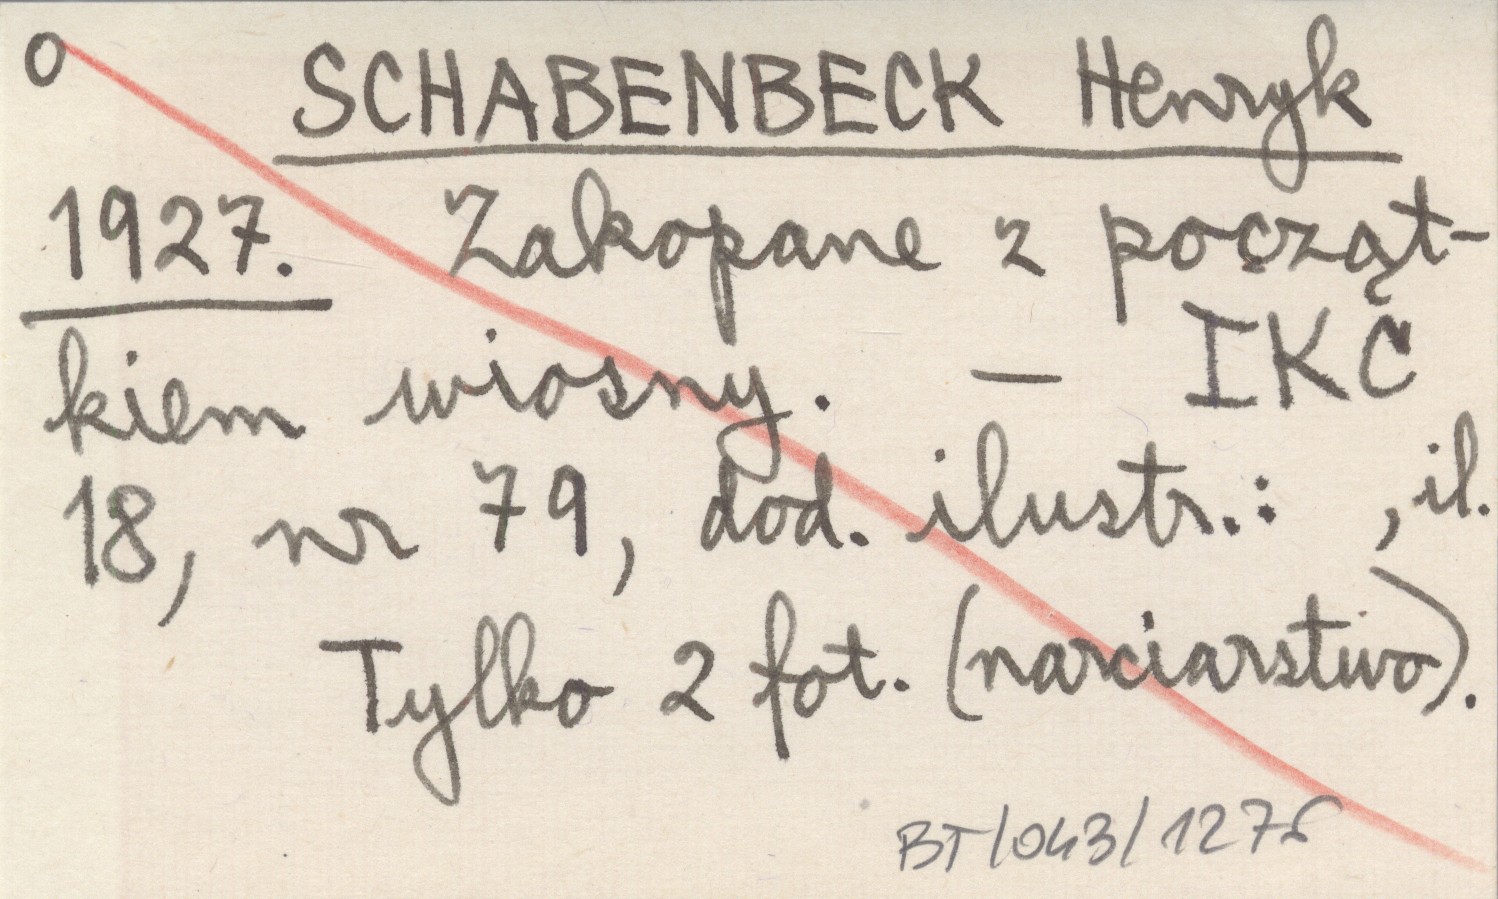 O SCHABENBECK Henryk
1927. Zakopane z począt-
kiem wiosny. — IKC
18, nr 79, dod. ilustr.: , il.
Tylko 2 fot. (narciarstwo).
BT/043/1276